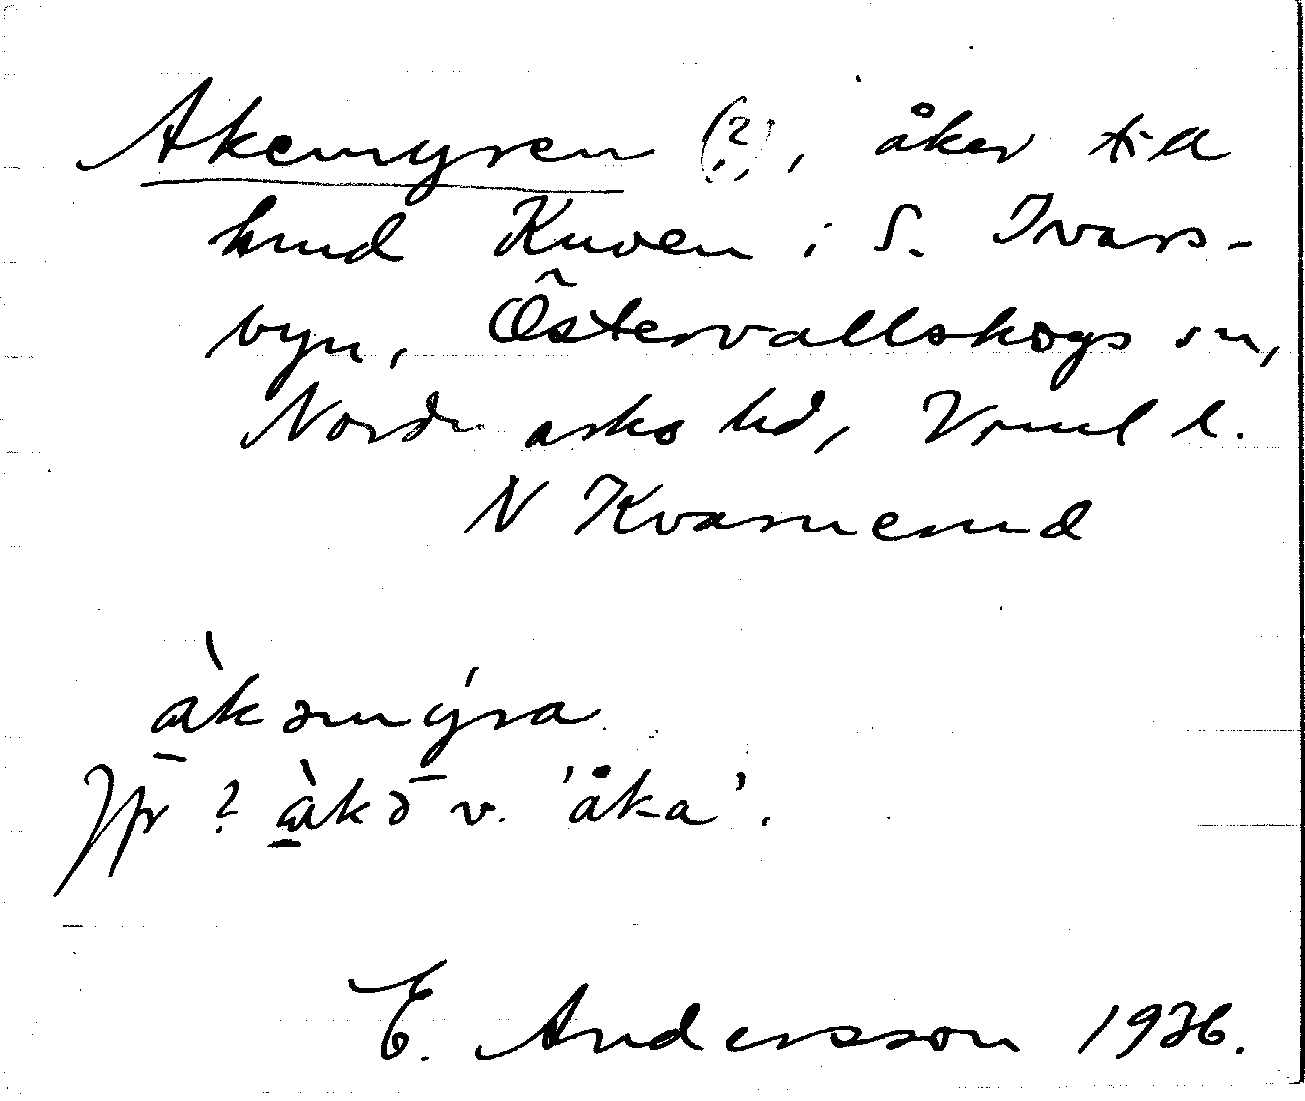 Akemyren (?), åker till
hmd Kuven i S. Ivars-
byn, Östervallskogs sn,
Nordmarks hd, Vrml l.
N Kvarnerud
àkəmýra
Jfr ? àkə v. 'åka'.
E. Andersson 1936.